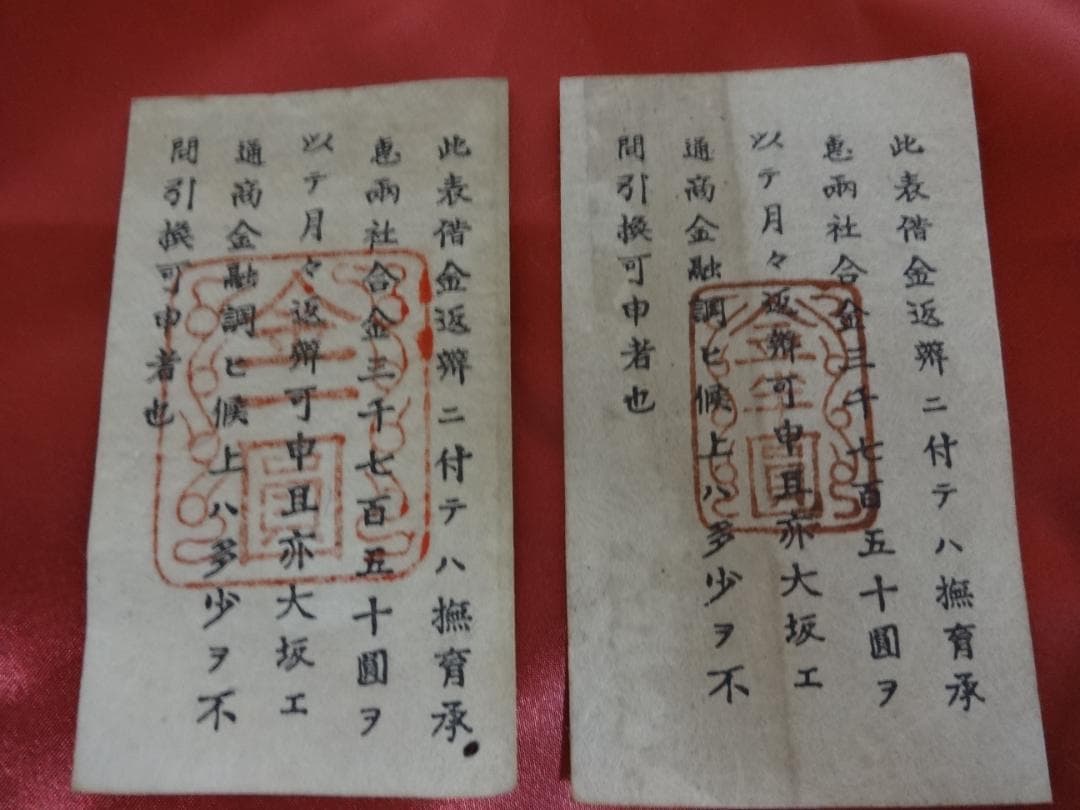 此表借金返辨ニ付テハ撫育承
恵兩社合金三千七百五十圓ヲ
以テ月々返辨可申且亦大坂エ
通商金融調ヒ候上ハ多少ヲ不
問引換可申者也
金一圓
此表借金返辨ニ付テハ撫育承
恵兩社合金三千七百五十圓ヲ
以テ月々返辨可申且亦大坂エ
通商金融調ヒ候上ハ多少ヲ不
問引換可申者也
金半圓